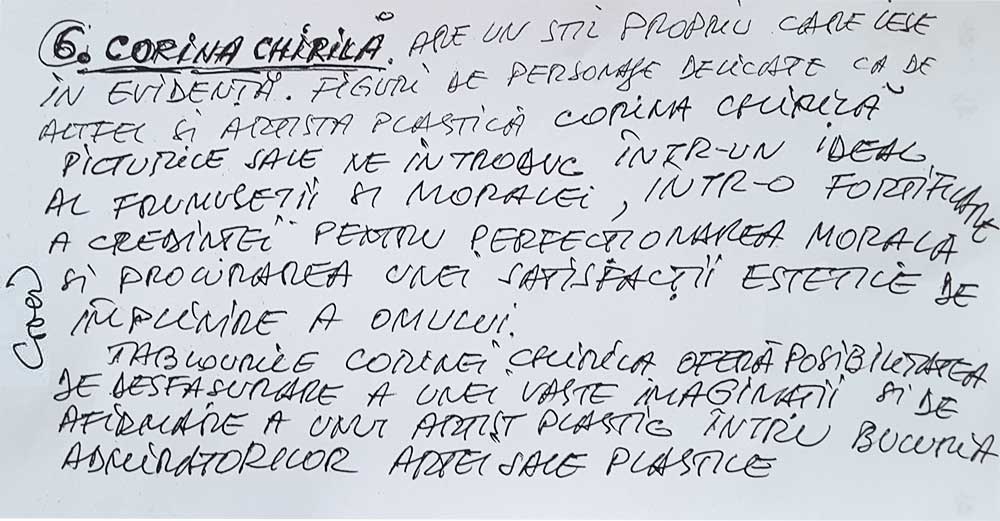 6. CORINA CHIRILĂ. ARE UN STIL PROPRIU CARE IESE
IN EVIDENȚĂ. FIGURI DE PERSONAJE DELICATE CA DE
ALTFEL SI ARTISTA PLASTICĂ CORINA CHIRILĂ
PICTURILE SALE NE INTRODUC ÎNTR-UN IDEAL
AL FRUMUSETII SI MORALEI, INTR-O FORTIFICARE
A CREDINTEI PENTRU PERFECTIONAREA MORALA
SI PROCURAREA UNEI SATISFACȚII ESTETICE DE
ÎMPLINIRE A OMULUI.
TABLOURILE CORINEI CHIRILA OFERĂ POSIBILITATEA
DE DESFASURARE A UNEI VASTE IMAGINATII SI DE
AFIRMARE A UNUI ARTIST PLASTIC ÎNTRU BUCURIA
ADMIRATORILOR ARTEI SALE PLASTICE